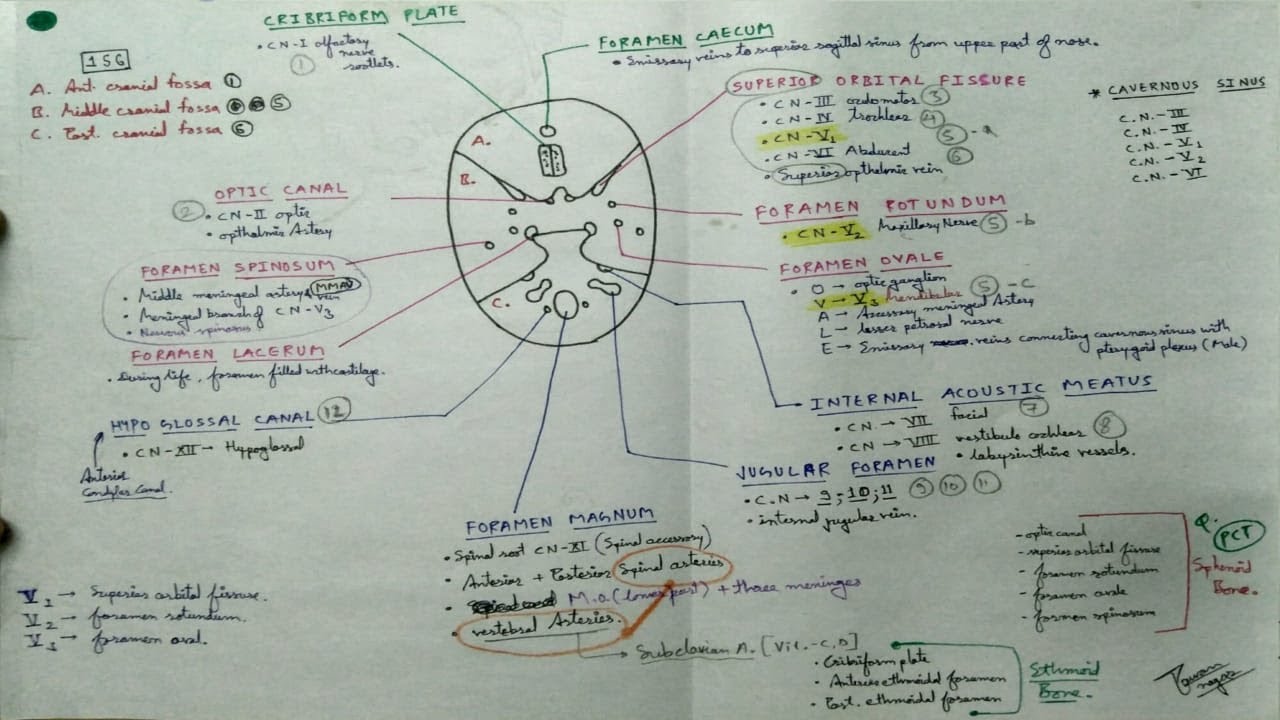 CRIBRIFORM PLATE
• CN-I olfactory
nerve
rootlets.
1
FORAMEN CAECUM
• Emissary veins to superior sagittal sinus from upper part of nose.
156
A. Ant. cranial fossa 1
B. Middle cranial fossa 5
C. Post. cranial fossa 6
SUPERIOR ORBITAL FISSURE
• CN-III occulomotor 3
• CN-IV trochlear 4
• CN-V1 5 - a
• CN-VI Abducent 6
• Superior opthelmic vein
* CAVERNOUS SINUS
C.N.-III
C.N.-IV
C.N.-V1
C.N.-V2
C.N.-VI
A.
B.
C.
OPTIC CANAL
2 • CN-II optic
• opthalmic Artery
FORAMEN ROTUNDUM
• CN-V2 Maxillary Nerve 5 -b
FORAMEN SPINOSUM
• Middle meningeal artery & vein MMAV
• Meningeal branch of CN-V3
• Nervous spinosus
FORAMEN OVALE
• O → optic ganglion
V → V3 Mandibular 5 - C
A → Accessory meningeal Artery
L → lesser petrosal nerve
E → Emissary veins connecting cavernous sinus with
pterygoid plexus (Male)
FORAMEN LACERUM
• During life, foramen filled with cartilage.
HYPO GLOSSAL CANAL 12
• CN-XII → Hypoglossal
Anterior
Condylar Canal.
INTERNAL ACOUSTIC MEATUS
• CN → VII facial 7
• CN → VIII vestibulo cochlear 8
• labyrinthine vessels.
JUGULAR FORAMEN
• C.N → 9, 10, 11 9 10 11
• internal jugular vein.
FORAMEN MAGNUM
• Spinal root CN-XI (Spinal accessory)
• Anterior + Posterior Spinal arteries
• M.O. (lower part) + three meninges
• vertebral Arteries.
→ Subclavian A. [Vit.-C,D]
V1 → Superior orbital fissure.
V2 → foramen rotundum.
V3 → foramen oval.
- optic canal
- superior orbital fissure
- foramen rotundum
- foramen ovale
- formen spinosum
Q. PCT
Sphenoid
Bone.
• Cribriform plate
• Anterior ethmoidal foramen
• Post. ethmoidal foramen
Ethmoid
Bone.